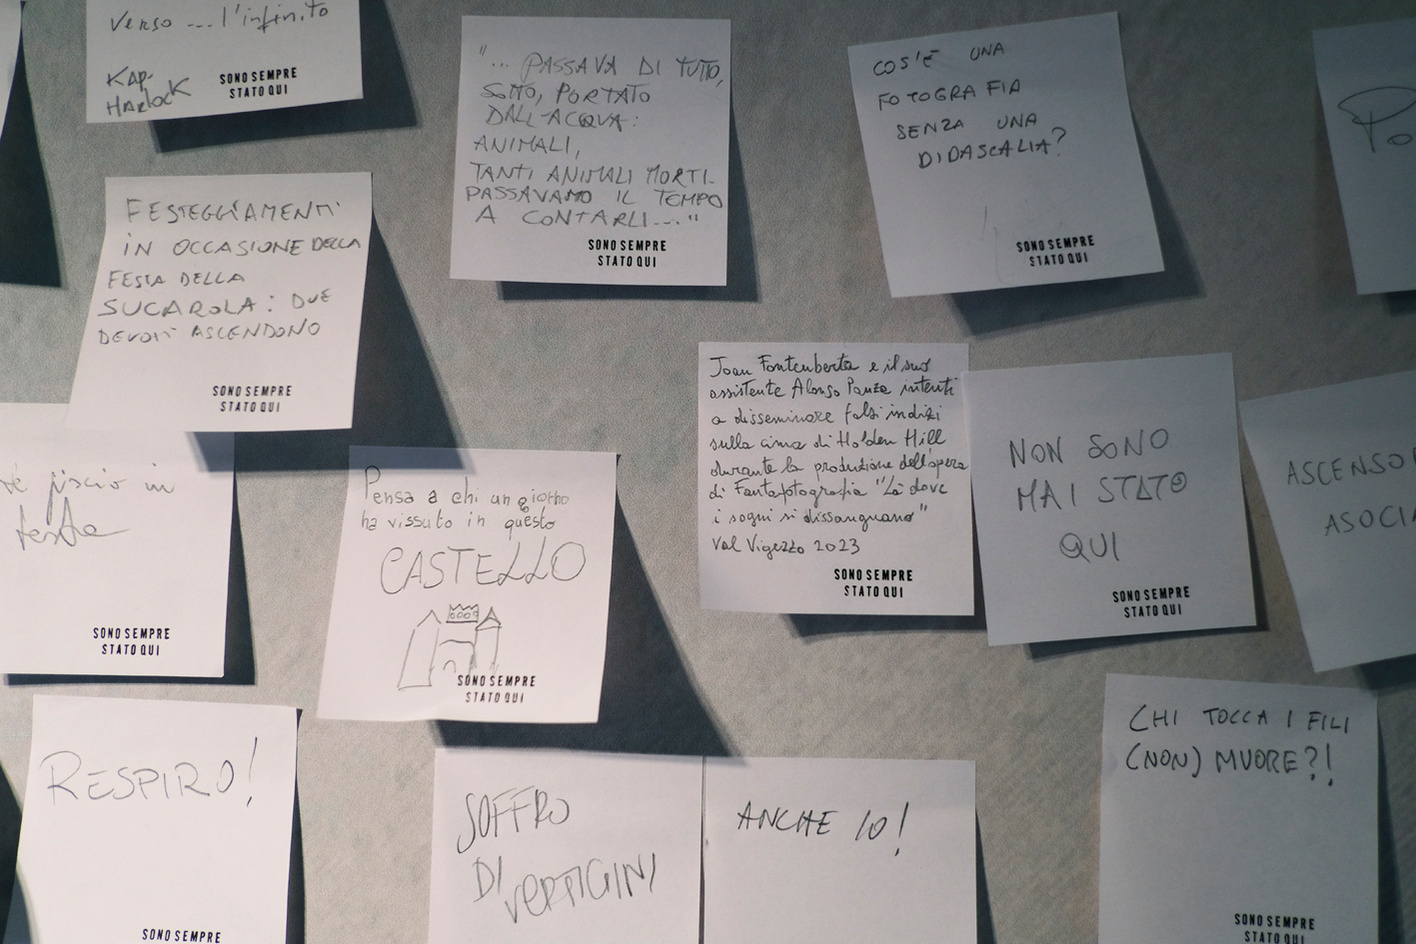 verso ...l'infinito
KAP-
HARLOCK
SONO SEMPRE
STATO QUI
"... PASSAVA DI TUTTO,
SOTTO, PORTATO
DALL'ACQUA:
ANIMALI,
TANTI ANIMALI MORTI.
PASSAVAMO IL TEMPO
A CONTARLI...."
SONO SEMPRE
STATO QUI
COS'È UNA
FOTOGRAFIA
SENZA UNA
DIDASCALIA?
SONO SEMPRE
STATO QUI
Po
FESTEGGIAMENTI
IN OCCASIONE DELLA
FESTA DELLA
SUCAROLA: DUE
DEVOTI ASCENDONO
SONO SEMPRE
STATO QUI
Joan Fontcuberta e il suo
assistente Alonso Panza intenti
a disseminare falsi indizi
sulla cima di Holden Hill
durante la produzione dell'opera
di Fantafotografia "Là dove
i sogni si dissanguano"
Val Vigezzo 2023
SONO SEMPRE
STATO QUI
NON SONO
MAI STATO
QUI
SONO SEMPRE
STATO QUI
ASCENSO
ASOCIA
in
testa
SONO SEMPRE
STATO QUI
Pensa a chi un giorno
ha vissuto in questo
CASTELLO
SONO SEMPRE
STATO QUI
RESPIRO!
SONO SEMPRE
SOFFRO
DI VERTIGINI
ANCHE IO!
CHI TOCCA I FILI
(NON) MUORE?!
SONO SEMPRE
STATO QUI